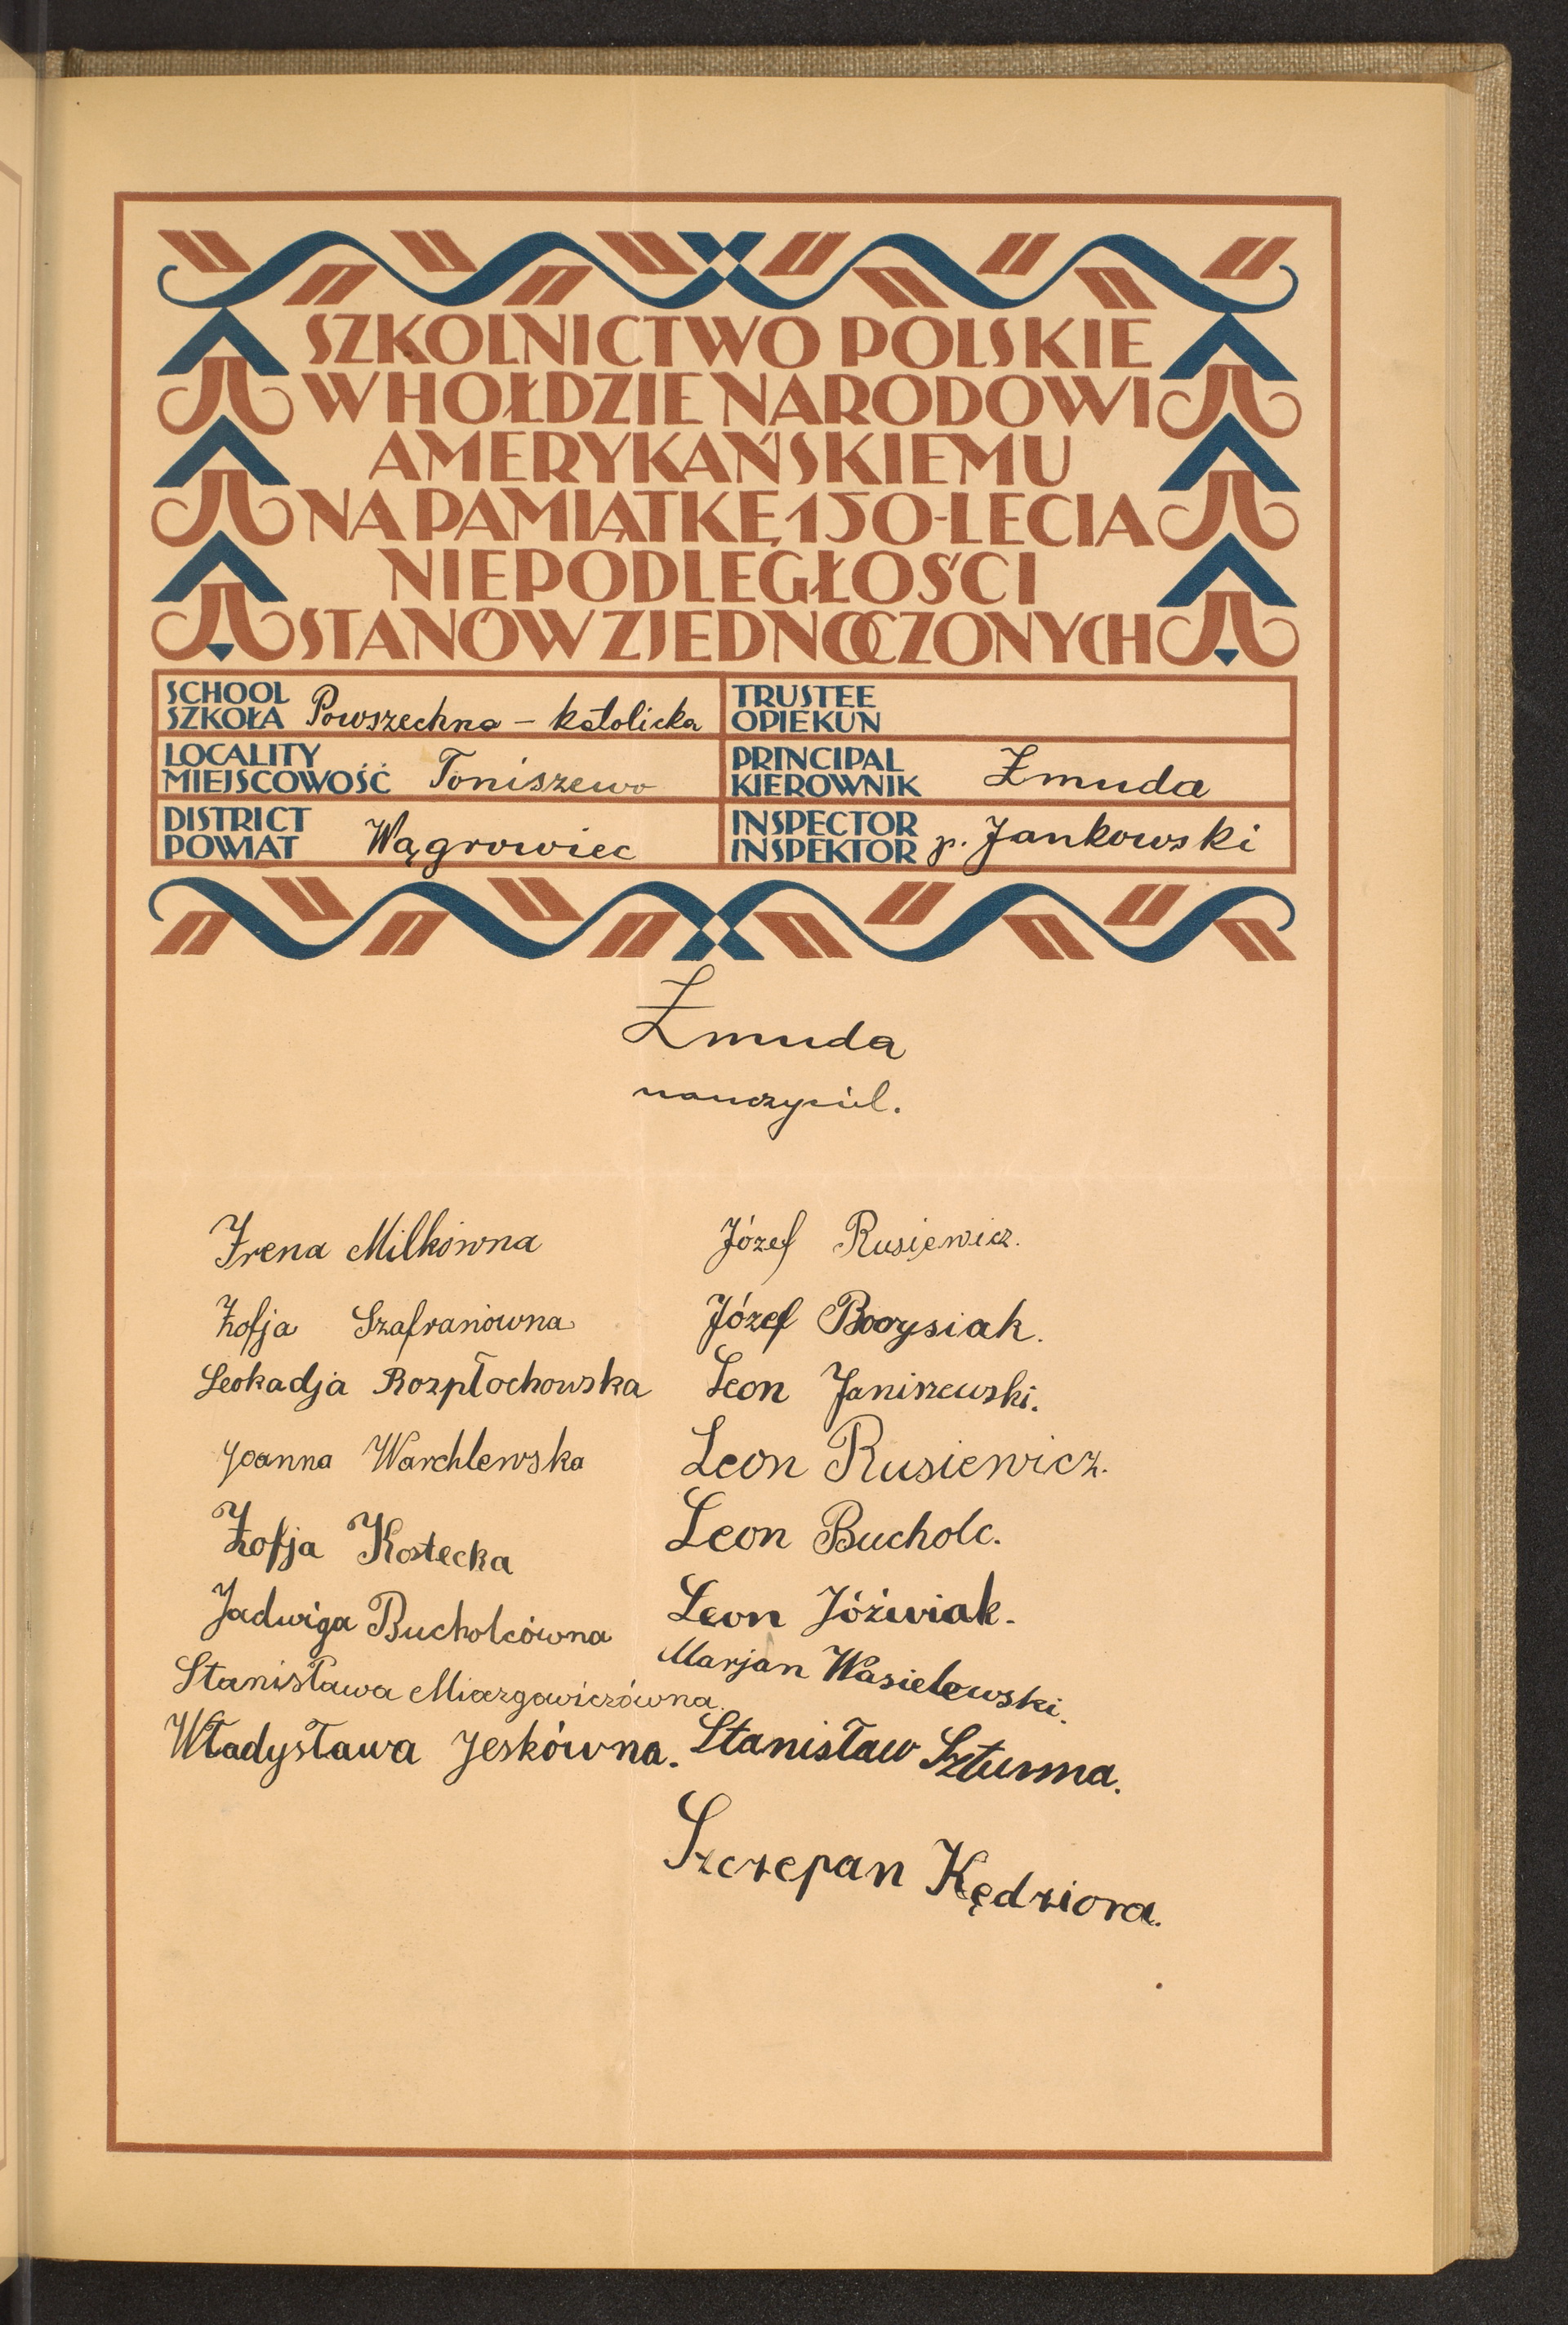 SZKOLNICTWO POLSKIE
W HOŁDZIE NARODOWI
AMERYKAŃSKIEMU
NA PAMIĄTKĘ 150-LECIA
NIEPODLEGŁOŚCI
STANÓW ZJEDNOCZONYCH
SCHOOL
SZKOŁA Powszechna - katolicka
TRUSTEE
OPIEKUN
LOCALITY
MIEJSCOWOŚĆ Toniszewo
PRINCIPAL
KIEROWNIK Żmuda
DISTRICT
POWIAT Wągrowiec
INSPECTOR
INSPEKTOR p. Jankowski
Żmuda
nauczyciel.
Irena Milkówna
Zofja Szafranówna
Leokadja Rozpłochowska
Joanna Warchlewska
Zofja Kostecka
Jadwiga Bucholcówna
Stanisława Miazgowiczówna.
Władysława Jeskówna.
Józef Rusiewicz.
Józef Borysiak.
Leon Janiszewski.
Leon Rusiewicz.
Leon Bucholc.
Leon Jóźwiak.
Marjan Wasielewski.
Stanisław Szturma.
Szczepan Kędziora.